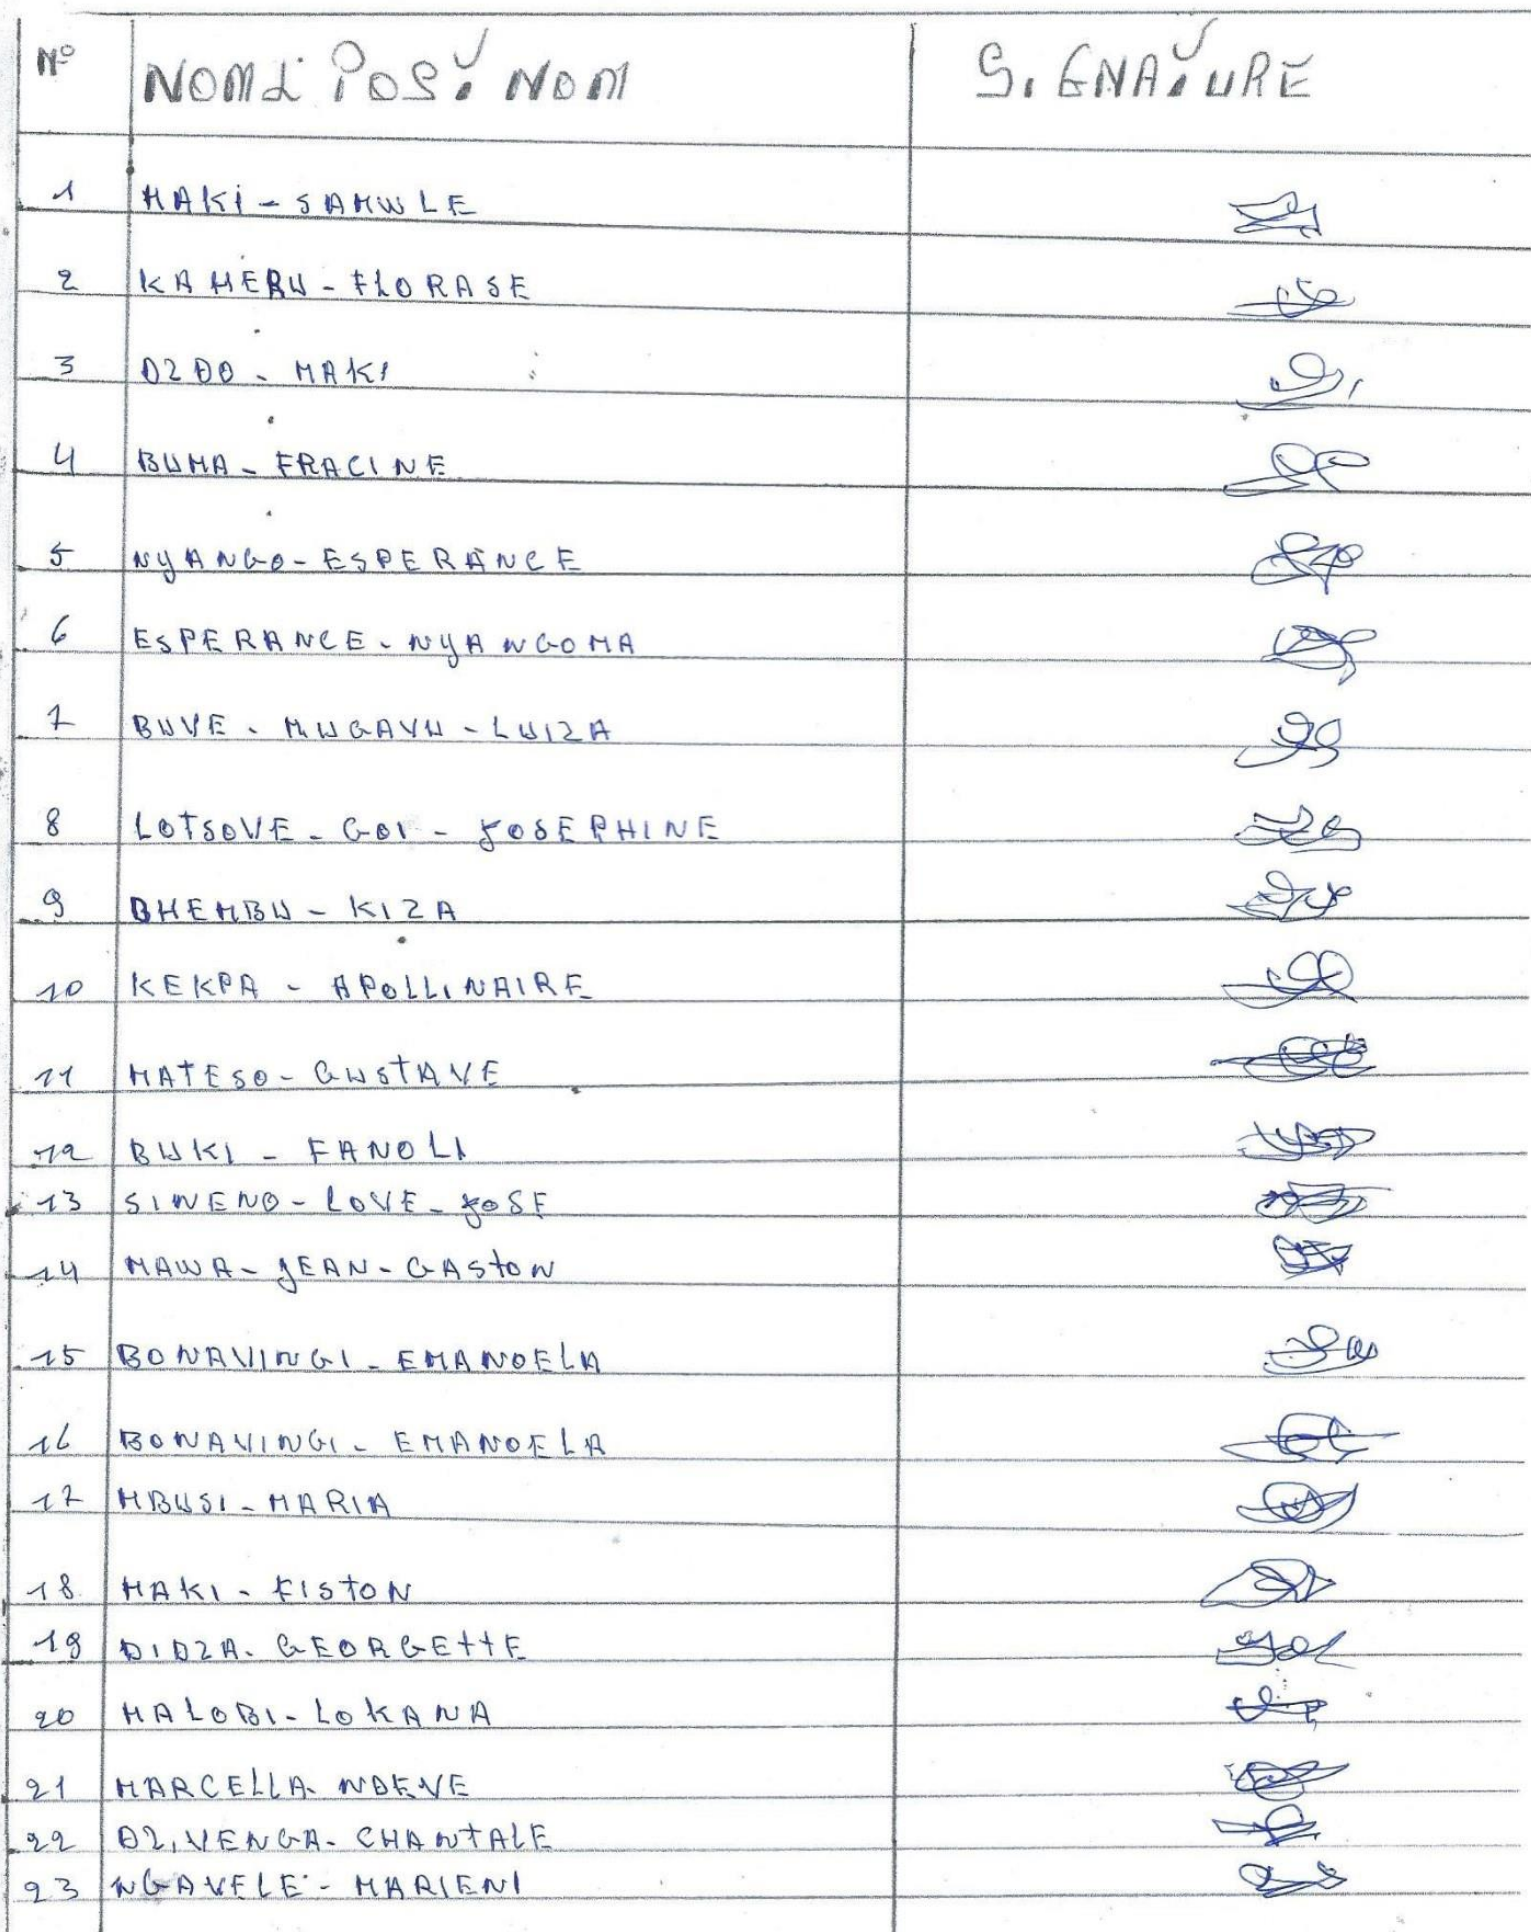 N° NOM & POST NOM SIGNATURE
1 MAKI - SAMULE
2 KAMERU - FLORASE
3 DZDO - MAKI
4 BUMA - FRACINE
5 NYANGO - ESPERANCE
6 ESPERANCE - NYANGOMA
7 BUVE - MUGAVU - LUIZA
8 LOTSOVE - GOI - JOSEPHINE
9 DHEMBU - KIZA
10 KEKPA - APOLLINAIRE
11 MATESO - GUSTAVE
12 BUKI - FANOLI
13 SINENO - LOVE - JOSE
14 MAWA - JEAN - GASTON
15 BONAVINGI - EMANOELA
16 BONAVINGI - EMANOELA
17 MBUSI - MARIA
18 MAKI - FISTON
19 DIDZA - GEORGETTE
20 MALOBI - LOKANA
21 MARCELLA - NDEVE
22 DZ, VENGA - CHANTALE
23 NGAVELE - MARIENI